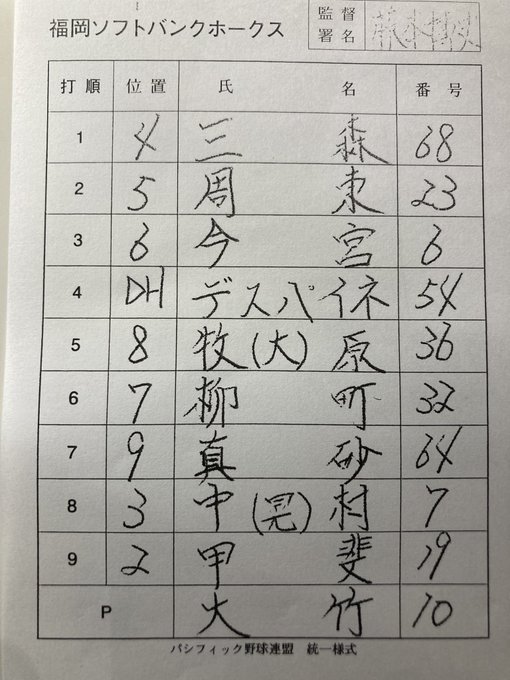 福岡ソフトバンクホークス
監督署名 藤本博史
打順 位置 氏 名 番号
1 4 三 森 68
2 5 周 東 23
3 6 今 宮 6
4 DH デスパイネ 54
5 8 牧(大)原 36
6 7 柳 町 32
7 9 真 砂 64
8 3 中(晃)村 7
9 2 甲 斐 19
P 大 竹 10
パシフィック野球連盟 統一様式